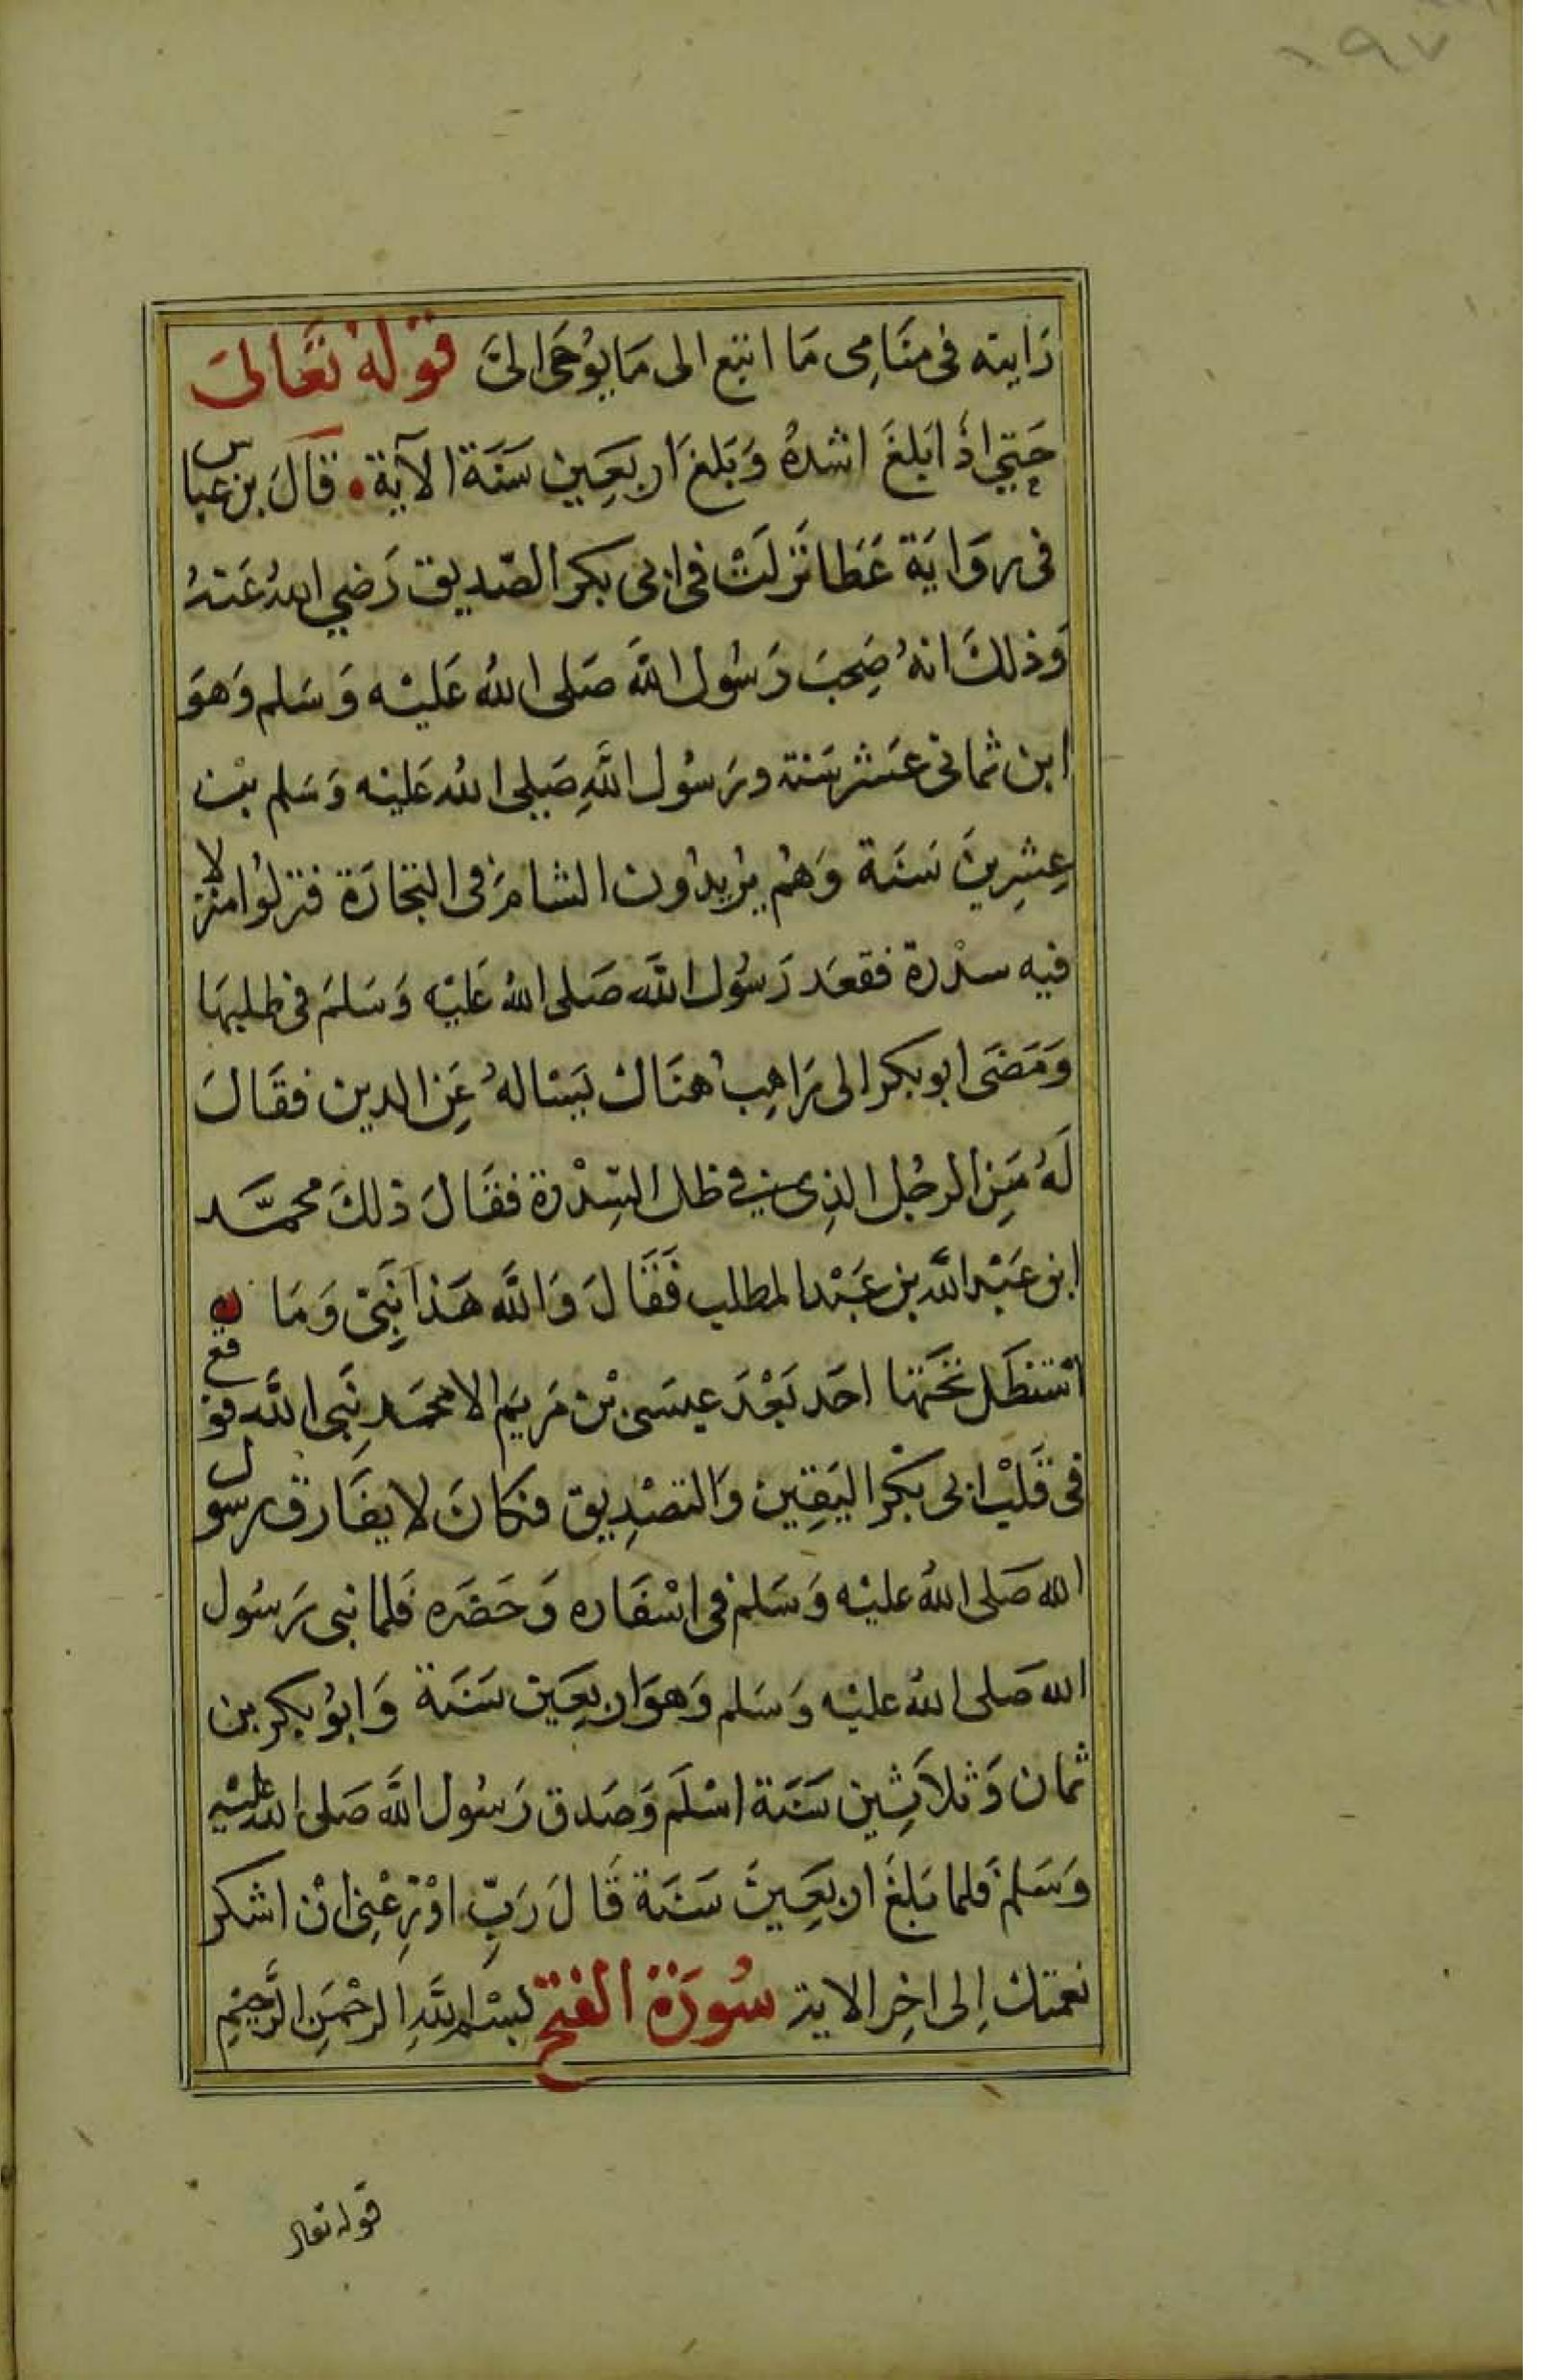 ١٩٧
رَايته فى منَامِى مَا اتبع الى مَا يوُحَى الىَّ قوْلهُ تعَالىَ
حَتي اذَا بَلغَ اشدهُ وَبَلغ اربَعِين سَنَة الآية قالَ بن عباس
فى روَايَة عَطا نَزلَتْ فى ابى بكر الصّديق رَضي اللهُ عَنهُ
وَذلكَ انهُ صَحِبَ رَسُول اللَّه صَلى اللهُ عَليْه وَسَلم وَهوَ
ابن ثمانى عَشر سَنة ورَسُول اللَّهِ صَلى اللهُ عَليْه وَسَلم بْن
عِشرِينَ سَنَة وَهُم يرُيدُون الشامَ فى التجَارَة فنزلوُا منزلا
فيه سدْرة فقعَد رَسُول اللَّه صَلى اللهُ عَليْه وَسَلمَ فى ظلهَا
وَمَضَى ابو بكر الى رَاهِب هنَاك يَسْالهُ عَنِ الدين فقَالَ
لَهُ مَنِ الرجُل الذِى فى ظل السِّدْرة فقَالَ ذلكَ محمَّد
ابن عَبْد اللَّه بن عَبْد المطلب فَقَالَ وَاللَّه هَذا نَبِىّ وَمَا
اسْتظَل تَحتَهَا احَد بَعْدَ عيسَى بْن مَريَم الا محمَد نَبِى اللَّه فوقع
فى قَلبْ ابى بَكْر اليَقِين وَالتصْدِيق فكانَ لا يفَارق رسول
الله صَلى اللهُ عليْه وَسَلم فى اسْفَاره وَحَضَره فَلما نبى رَسُول
الله صَلى اللهُ عليْه وَسَلم وَهوَ اربعِين سَنَة وَابوُ بكر بن
ثمان وَثلاَثِين سَنَة اسْلَم وَصَدق رَسُول اللَّه صَلى الله عليْه
وَسَلمَ فلما بَلغَ اربَعِينَ سَنَة قَالَ رَبِّ اوْزِعْنِى انْ اشكر
نعمتك اِلى اخِر الاية سُورَة الفتح بسْم اللَّهِ الرحْمَنِ الرَّحِيْمِ
قوله تعالى